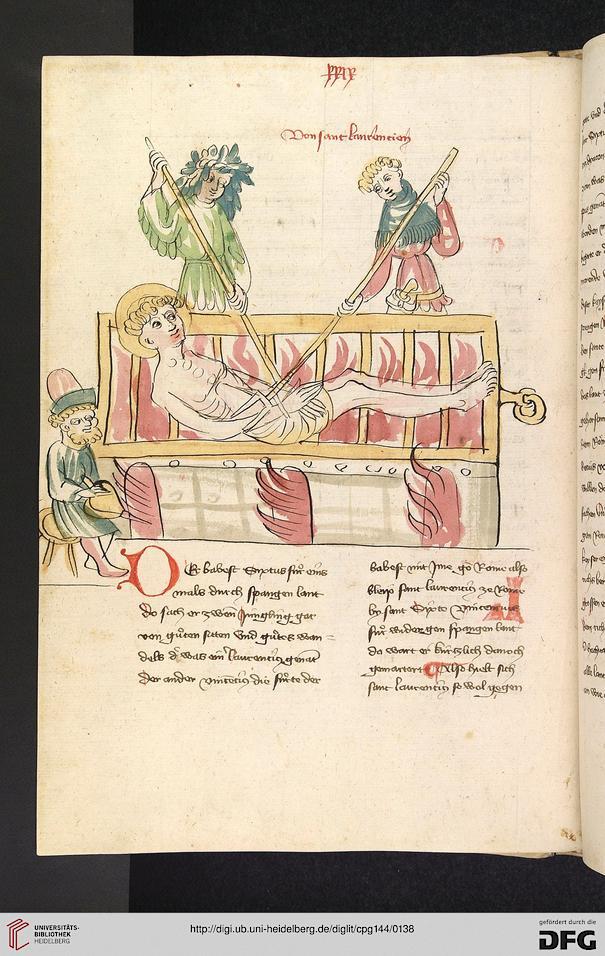 xxix
Von sant laurencien
Der babest Sixtus fůr eins
mals durch spangen lant
do sach er zwen Jungling gar
von gůten siten vnd gůte wan=
dels d' was ein laurencius genāt
der ander vincēcius die fůrte der
babest mit jme go Rome also
bleip sant laurencius ze Rome
by sant Sixto Vincencius
fůr wider gen spangen lant
do wart er kürtzlich danoch
gemartert Also hielt sich
sant laurencius so wol gegen
UNIVERSITÄTS-
BIBLIOTHEK
HEIDELBERG
http://digi.ub.uni-heidelberg.de/diglit/cpg144/0138
gefördert durch die
DFG